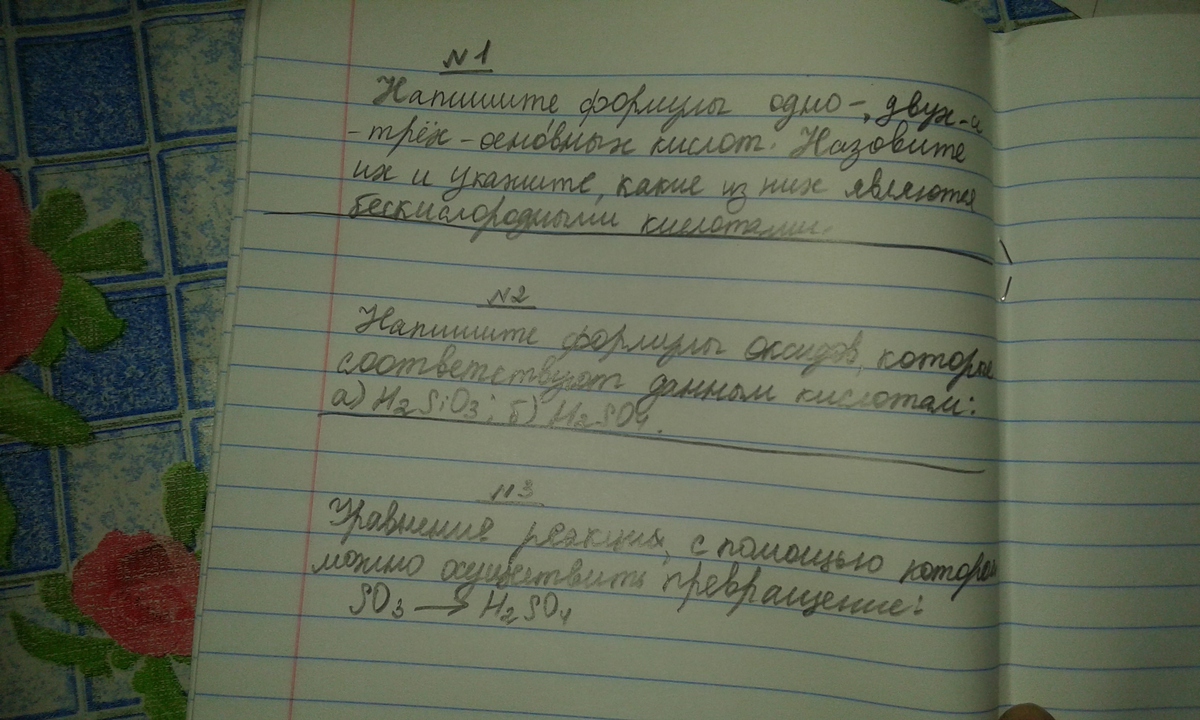 №1
Напишите формулы одно-, двух- и
-трёх-осно́вных кислот. Назовите
их и укажите, какие из них являются
бескислородными кислотами.
№2
Напишите формулы оксидов, которые
соответствуют данным кислотам:
а) H₂SiO₃; б) H₂SO₄.
№3
Уравнения реакции, с помощью которой
можно осуществить превращение:
SO₃ → H₂SO₄